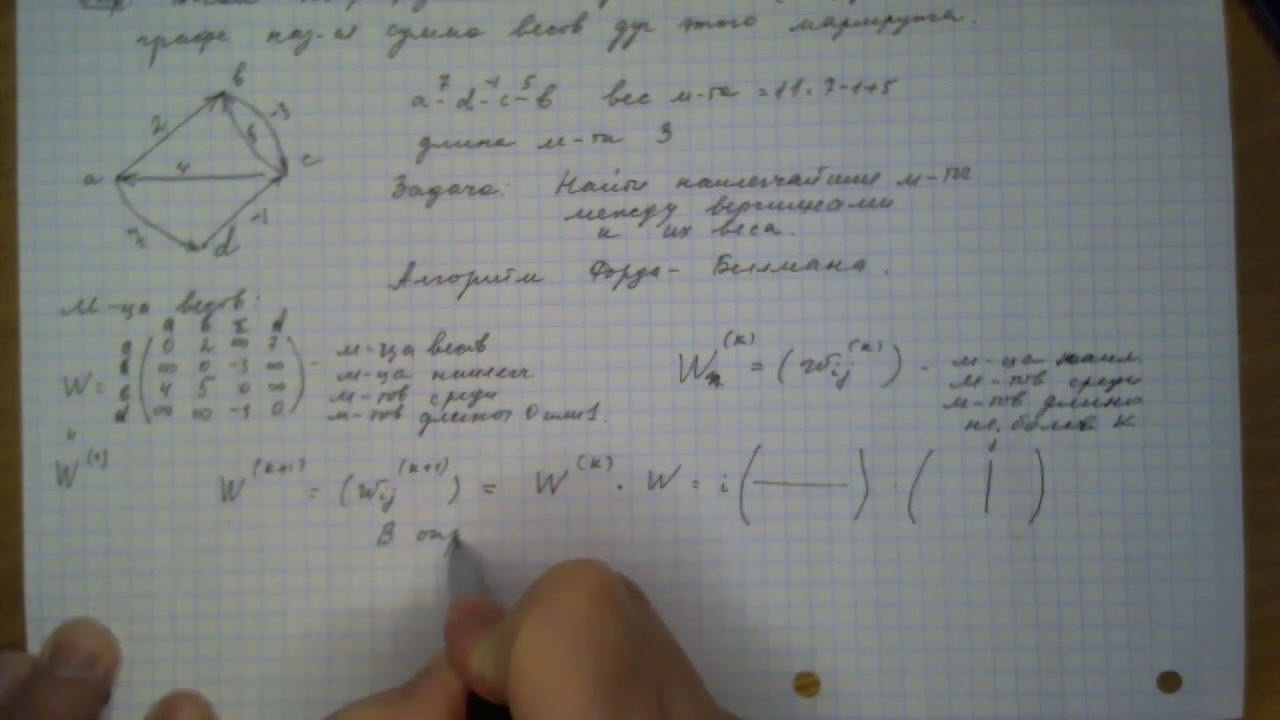 графе наз-ся сумма весов дуг этого маршрута.
b
2
-3
5
c
4
a
7
-1
d
7 -1 5
a - d - c - b вес м-та = 11 = 7-1+5
длина м-та 3
Задача: Найти наилегчайшие м-ты
между вершинами
и их веса.
Алгоритм Форда - Беллмана.
М-ца весов:
a b c d
a 0 2 ∞ 7
∞ 0 -3 ∞
4 5 0 ∞
d ∞ ∞ -1 0
W =
- м-ца весов
м-ца наилегч
м-тов среди
м-тов длины 0 или 1.
"
W^(1)
W^(k) = (w_ij^(k)) - м-ца наил.
м-тов среди
м-тов длины
не более k
W^(k+1) = (w_ij^(k+1)) = W^(k) · W = i ( — ) · ( | ) j
В опр